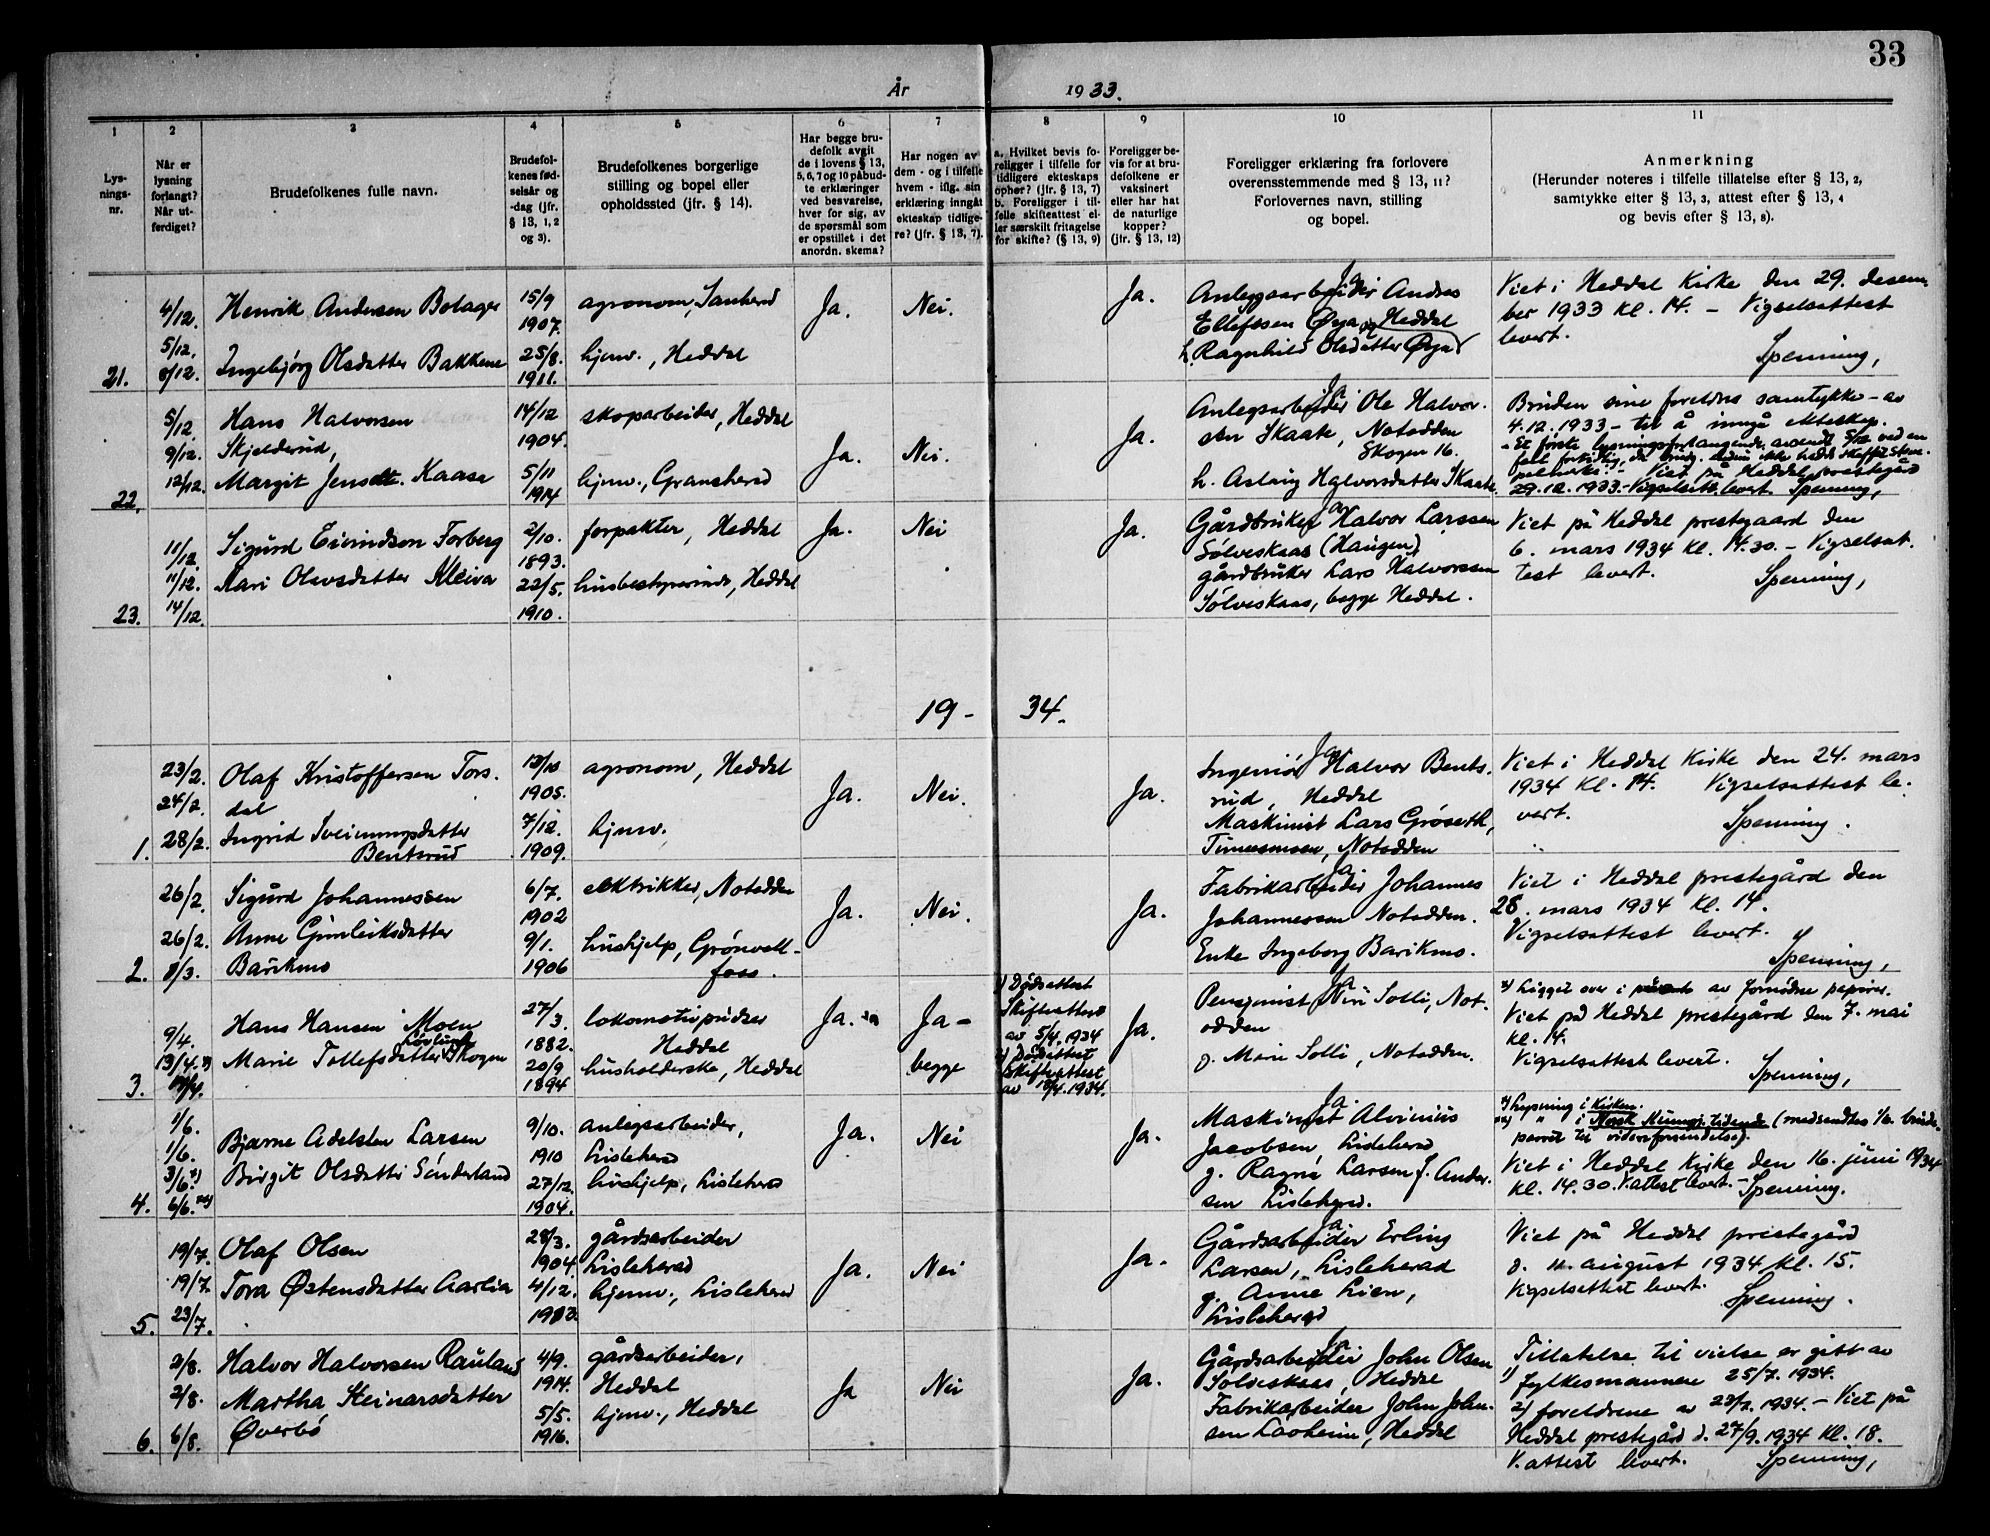 33
År 1933.
1 2 3 4 5 6 7 8 9 10 11
Lysningsnr.
Når er lysning forlangt? Når utferdiget?
Brudefolkenes fulle navn.
Brudefolkenes fødselsår og -dag (jfr. § 13, 1, 2 og 3).
Brudefolkenes borgerlige stilling og bopel eller opholdssted (jfr. § 14).
Har begge brudefolk avgit de i lovens § 13, 5, 6, 7 og 10 påbudte erklæringer ved besvarelse, hver for sig, av de spørsmål som er opstillet i det anordn. skema?
Har nogen av dem - og i tilfelle hvem - iflg. sin erklæring inngåt ekteskap tidligere? (jfr. § 13, 7).
a. Hvilket bevis foreligger i tilfelle for tidligere ekteskaps ophør? (jfr. § 13, 7)
b. Foreligger i tilfelle skifteattest eller særskilt fritagelse for skifte? (§ 13, 9)
Foreligger bevis for at brudefolkene er vaksinert eller har hat de naturlige kopper? (jfr. § 13, 12)
Foreligger erklæring fra forlovere overensstemmende med § 13, 11? Forlovernes navn, stilling og bopel.
Anmerkning
(Herunder noteres i tilfelle tillatelse efter § 13, 2, samtykke efter § 13, 3, attest efter § 13, 4 og bevis efter § 13, 8).
21.
4/12.
5/12.
8/12.
Henrik Andersen Bolager
Ingebjørg Olsdatter Bakkene
15/9
1907.
25/8.
1911.
agronom, Sauherad
hjemv., Heddal
Ja.
Nei.
Ja.
Ja
Anleggsarbeider Andres
Ellefssen Øya, Heddal
h. Ragnhild Olsdatter Øya
Viet i Heddal Kirke den 29. desem
ber 1933 kl. 14. – Vigselsattest
levert.
Spenning,
22.
5/12
9/12.
12/12.
Hans Halvorsen
Skjelderud,
Margit Jensdt. Kaasa
14/12
1904.
5/11
1914
skoparbeider, Heddal
hjemv., Gransherad
Ja.
Nei.
Ja.
Ja
Anlegsarbeider Ole Halvor.
sen Skaate, Notodden
Skogen 16.
h. Aslaug Halvorsdatter Skaate.
Bruden sine foreldres samtykke – av
4.12.1933 – til å inngå ekteskap.
Viet på Heddal prestegård
29.12.1933. – Vigselsatt. levert. Spenning,
23.
11/12.
11/12.
14/12.
Sigurd Eivindson Forberg
Kari Olavsdatter Kleiva
2/10.
1893.
22/5.
1910.
forpakter, Heddal
husbestyrerinde, Heddal
Ja.
Nei
Ja.
Ja
Gårdbruker Halvor Larssen
Sølveskaas (Haugen)
gårdbruker Lars Halvorssen
Sølveskaas, begge Heddal.
Viet på Heddal prestegaard den
6. mars 1934 kl. 14.30. – Vigselsat.
test levert. Spenning,
19 – 34.
1.
23/2.
24/2
28/2.
Olaf Kristoffersen Tors.
dal
Ingrid Sveinungsdatter
Bentsrud
13/10
1905.
7/12.
1909.
agronom, Heddal
hjemv.
Ja.
Nei.
Ja.
Ja
Ingeniør Halvor Bents.
rud, Heddal
Maskinist Lars Grøseth,
Tinnesmoen, Notodden
Viet i Heddal Kirke den 24. mars
1934 kl. 14. Vigselsattest le.
vert.
Spenning.
2.
26/2.
26/2.
1/3.
Sigurd Johannessen
Anne Gunleiksdatter
Barikmo
6/7.
1902
9/1.
1906
elektrikker, Notodden
hushjelp, Grønvoll-
foss.
Ja.
Nei.
Ja.
Ja
Fabrikarbeider Johannes
Johannessen Notodden.
Enke Ingeborg Barikmo.
Viet i Heddal prestegård den
28. mars 1934 kl. 14.
Vigselsattest levert.
Spenning,
3.
9/4.
13/4. x)
Hans Hansen Moen
Marie Tollefsdatter Skogen
27/3.
1882.
20/9
1894
lokomotivpudser
Heddal
husholderske, Heddal
Ja.
Ja –
begge
1) Dødsattest
Skifteattest
av 5/4.1934
2) Dødsattest
Skifteattest
av 13/4.1934.
Ja.
Ja
Pensjonist Niri Solli, Not.
odden
g. Marie Solli, Notodden.
x) Ligget over i av fornødne papirer.
Viet på Heddal prestegård den 7. mai
kl. 14.
Vigselsattest levert.
Spenning,
4.
1/6.
1/6.
3/6. x)
6/6. xx)
Bjarne Adelsten Larsen
Birgit Olsdatter Sønderland
9/10.
1910
27/12.
1904.
anlegsarbeider,
Lisleherad
hushjelp, Lisleherad
Ja.
Nei
Ja.
Ja.
Maskinist Alvinius
Jacobsen Lisleherad
g. Ragna Larsen f. Ander.
sen Lisleherad.
x) Lysning i Kirken.
xx) " i Norsk Kunngj. tidende (medsendtes 1/6. brude.
parret til videreforsendelse).
Viet i Heddal Kirke den 16. juni 1934
kl. 14.30. V.attest levert. – Spenning.
5.
19/7.
19/7.
23/7.
Olaf Olsen
Tora Østensdatter Aarlia
28/3.
1904.
4/12.
1903.
gårdsarbeider
Lisleherad
hjemv., Lisleherad
Ja.
Nei
Ja.
Ja
Gårdsarbeider Erling
Larsen, Lisleherad
g. Anne Lien,
Lisleherad
Viet på Heddal prestegård
d. 11. august 1934 kl. 15.
Vigselsattest levert.
Spenning.
6.
2/8.
2/8.
6/8.
Halvor Halvorsen Rauland
Martha Steinarsdatter
Øverbø
4/9.
1914.
5/5.
1916.
gårdsarbeider,
Heddal
hjemv., Heddal
Ja
Nei
Ja.
Ja
Gårdsarbeider John Olsen
Sølveskaas, Heddal
Fabrikarbeider John John.
sen Lavheim, Heddal
Tillatelse til vielse er gitt av
1) fylkesmannen 25/7. 1934.
2) foreldrene av 23/7. 1934. – Viet på
Heddal prestegård d. 27/9. 1934 kl. 18.
V.attest levert. Spenning,